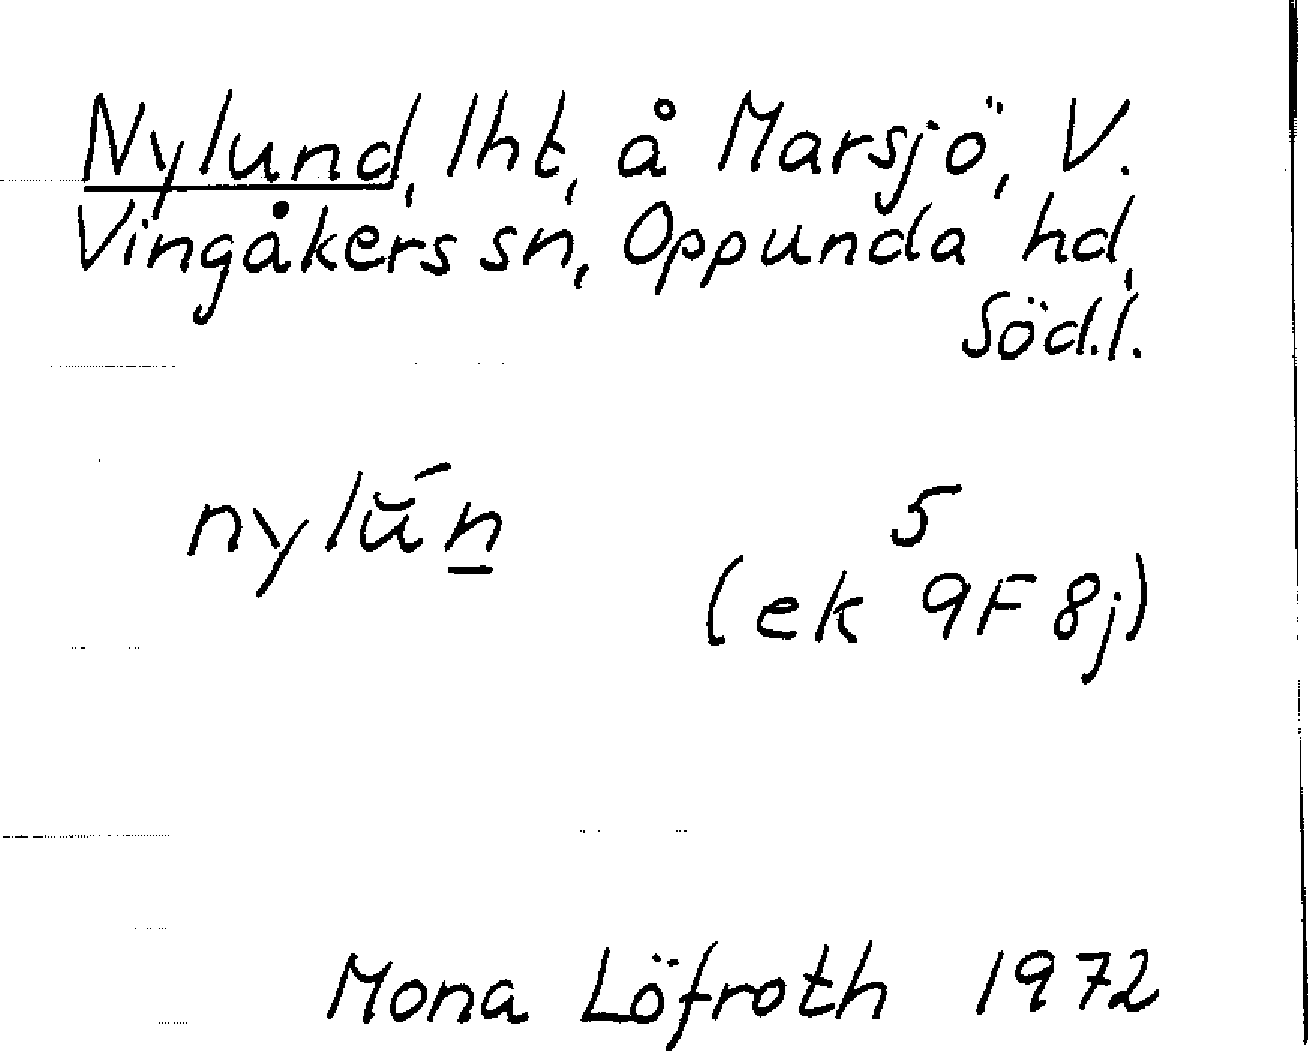 Nylund, lht, å Marsjö, V.
Vingåkers sn, Oppunda hd,
Söd.l.
nylŭ́n̲
5
(ek 9F 8j)
Mona Löfroth 1972